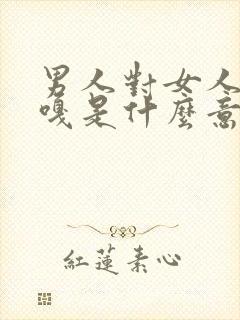 男人對女人
嘎是什麼意
紅蓮素心